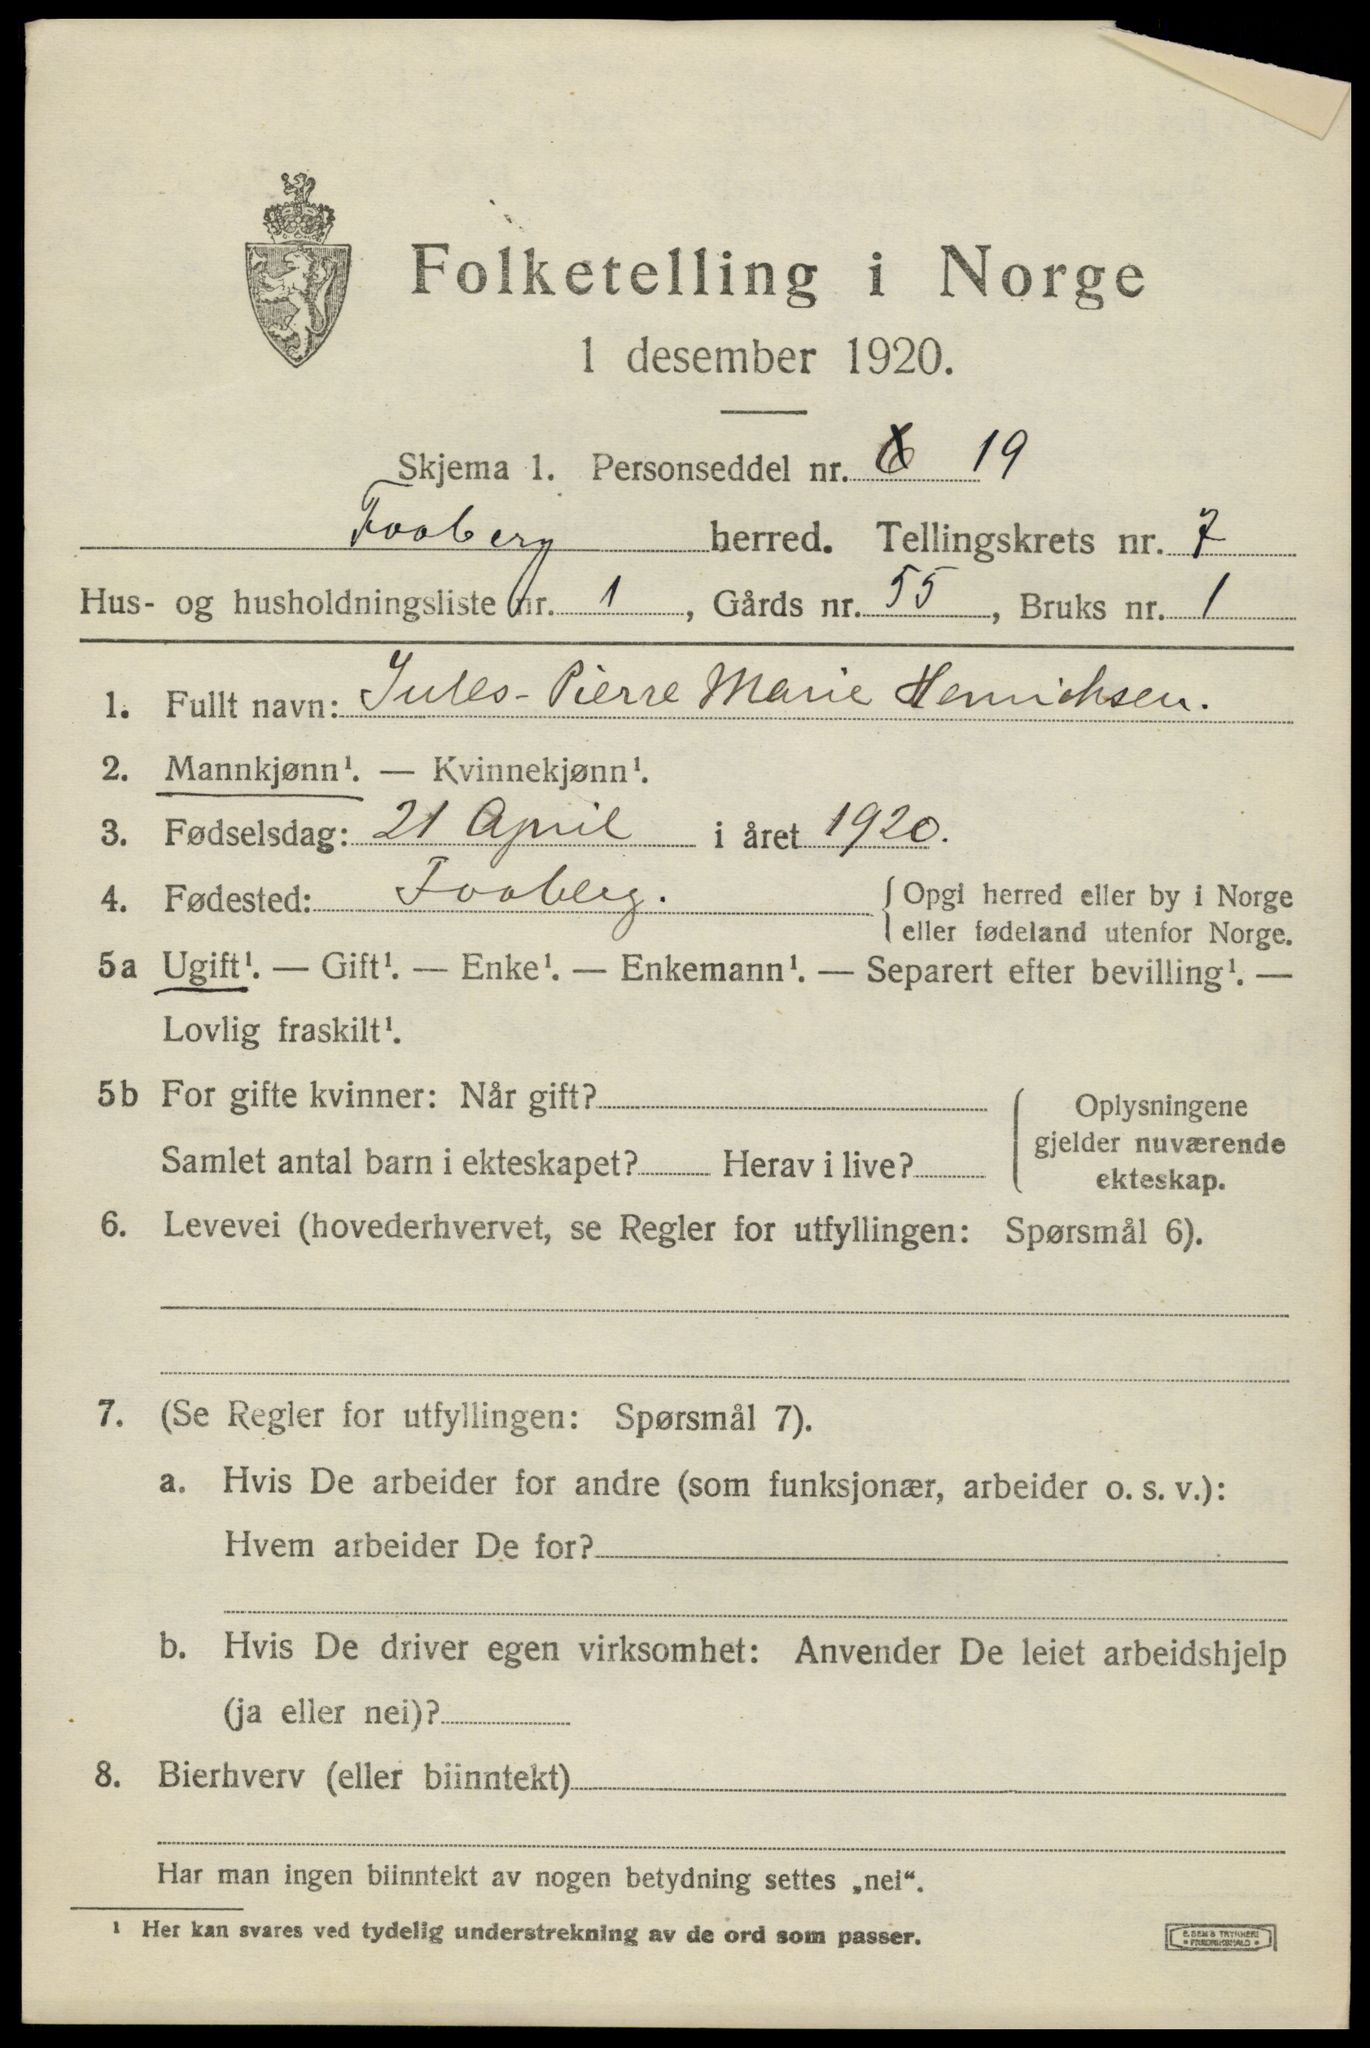 Folketelling i Norge
1 desember 1920.
Skjema 1. Personseddel nr. 19
Faaberg herred. Tellingskrets nr. 7
Hus- og husholdningsliste nr. 1, Gårds nr. 55, Bruks nr. 1
1. Fullt navn: Jules-Pierre Marie Henrichsen.
2. Mannkjønn¹. — Kvinnekjønn¹.
3. Fødselsdag: 21 April i året 1920.
4. Fødested: Faaberg. { Opgi herred eller by i Norge
eller fødeland utenfor Norge.
5a Ugift¹. — Gift¹. — Enke¹. — Enkemann¹. — Separert efter bevilling¹. —
Lovlig fraskilt¹.
5b For gifte kvinner: Når gift?
Samlet antal barn i ekteskapet? Herav i live?
{ Oplysningene
gjelder nuværende
ekteskap.
6. Levevei (hovederhvervet, se Regler for utfyllingen: Spørsmål 6).
7. (Se Regler for utfyllingen: Spørsmål 7).
a. Hvis De arbeider for andre (som funksjonær, arbeider o. s. v.):
Hvem arbeider De for?
b. Hvis De driver egen virksomhet: Anvender De leiet arbeidshjelp
(ja eller nei)?
8. Bierhverv (eller biinntekt)
Har man ingen biinntekt av nogen betydning settes „nei“.
¹ Her kan svares ved tydelig understrekning av de ord som passer.